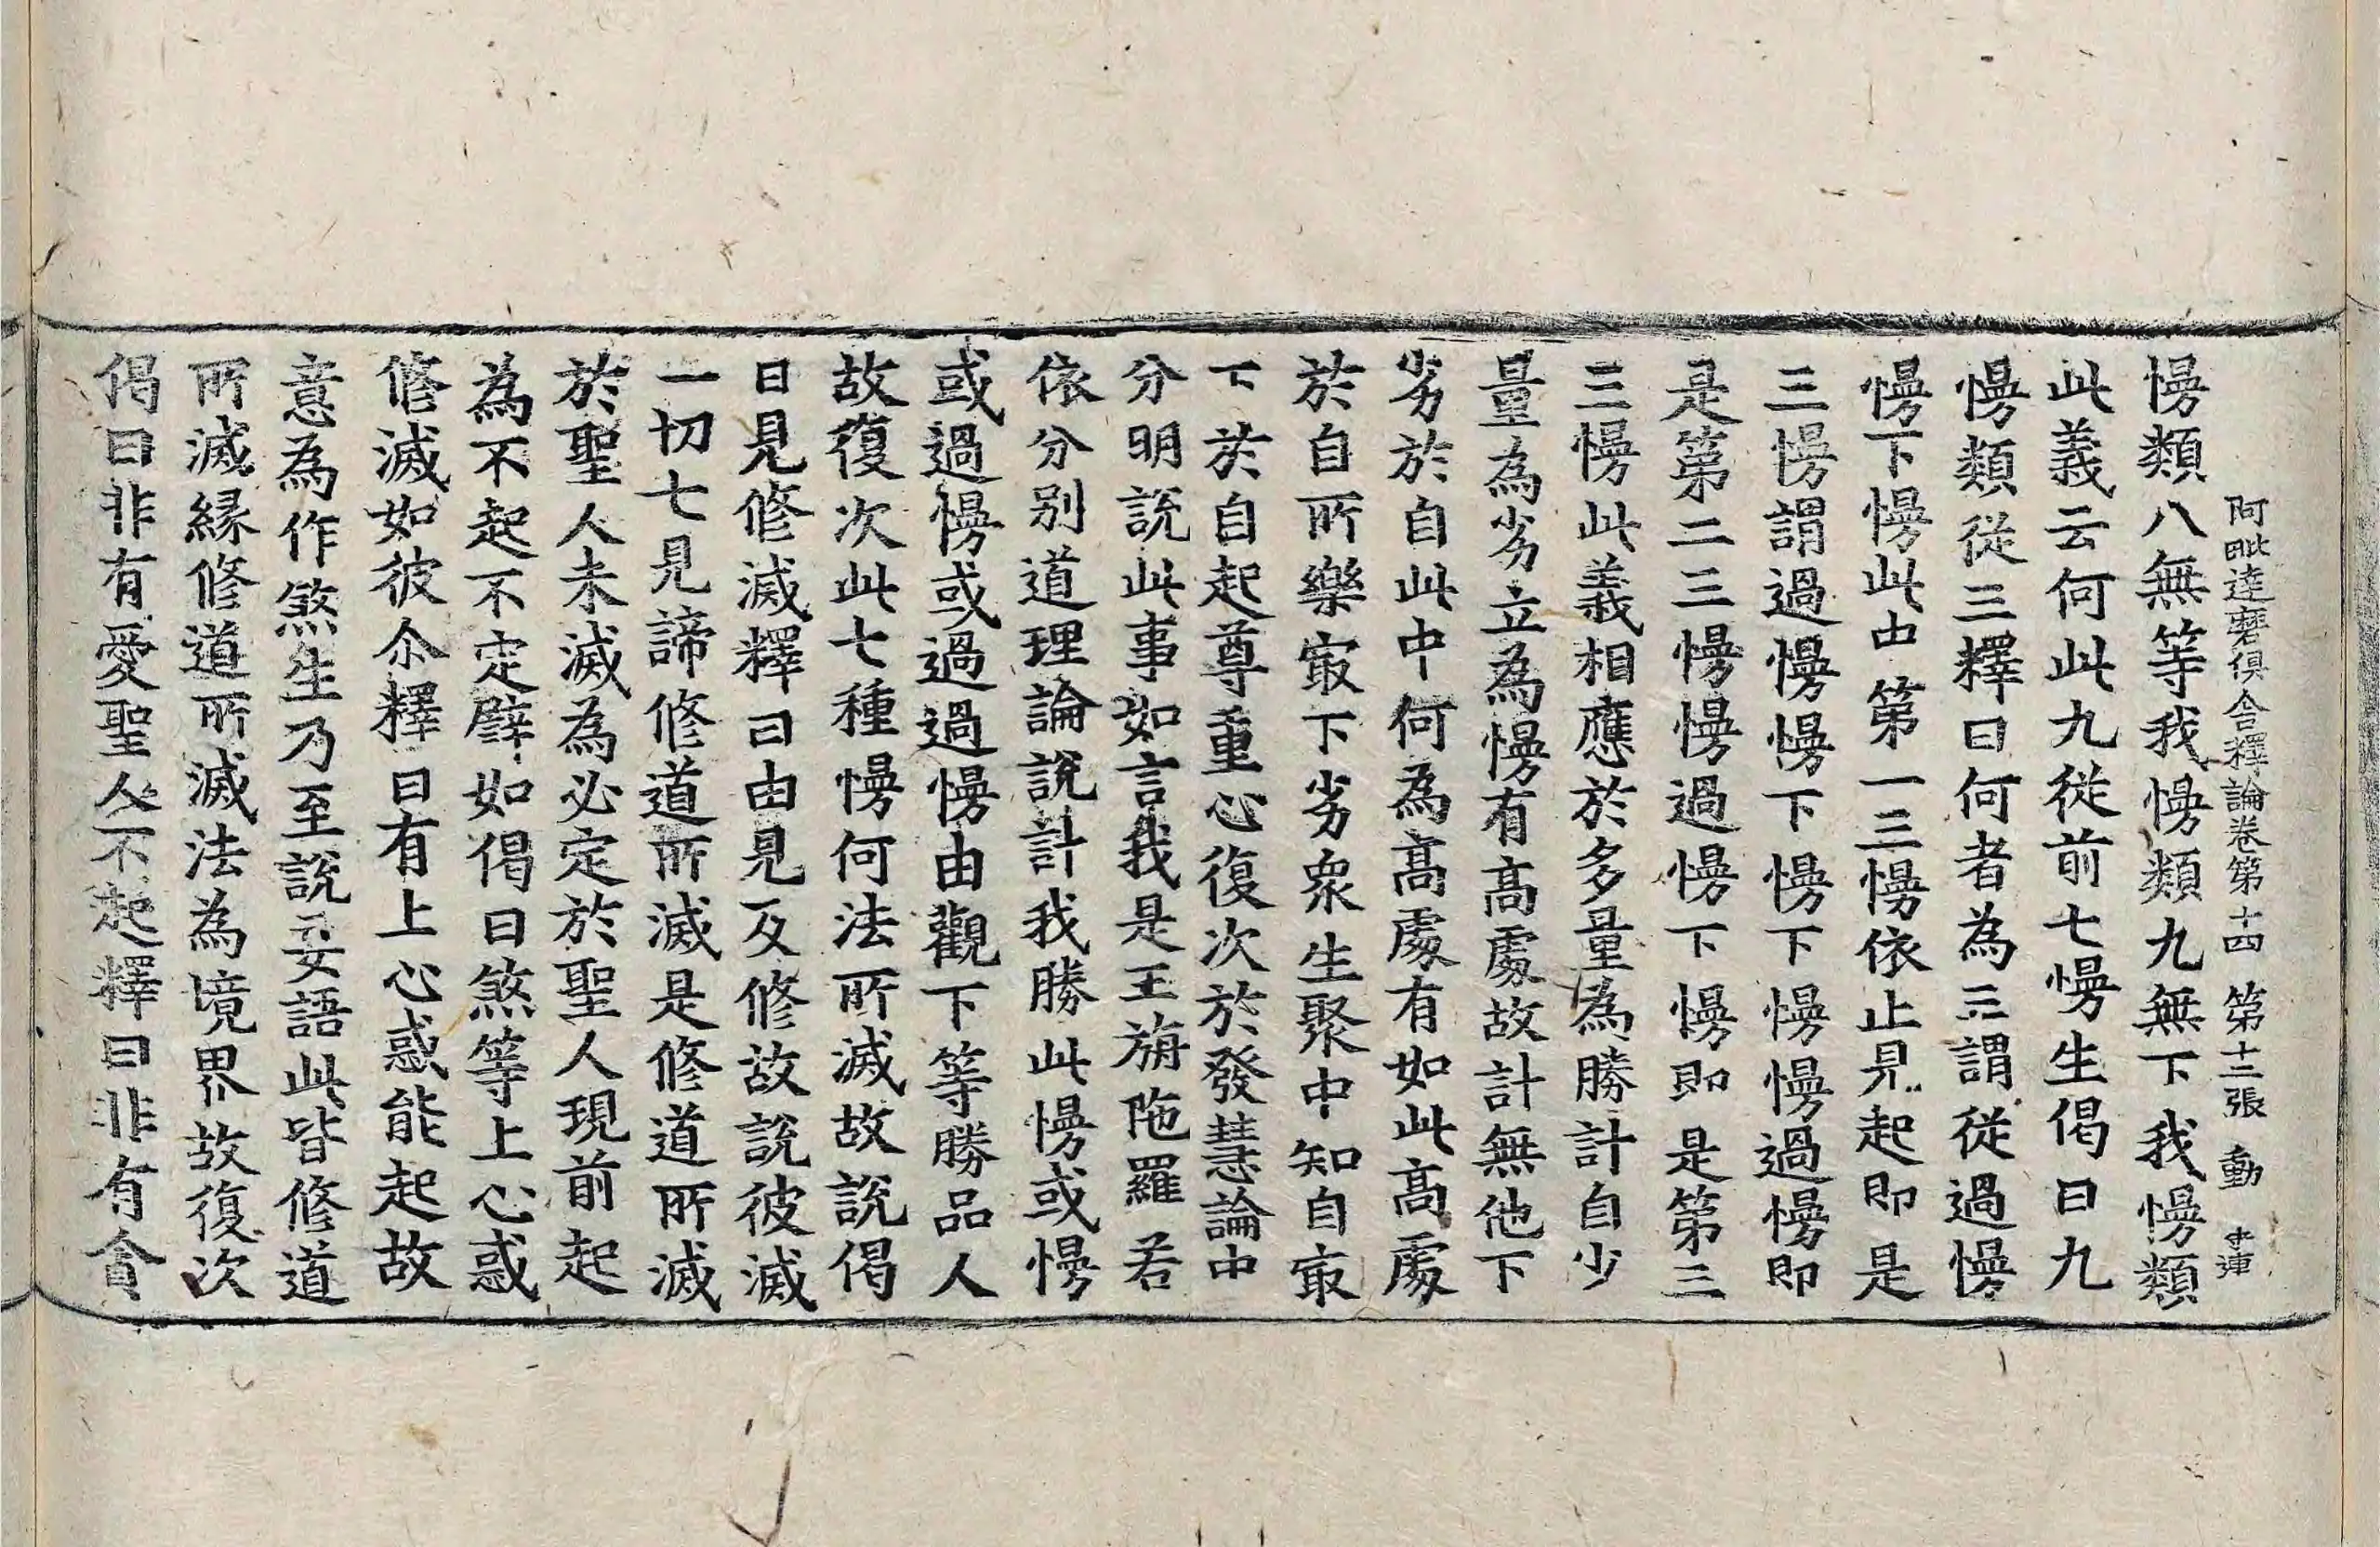 阿毗達磨俱舍釋論卷第十四 第十二張 動
慢類八無等我慢類九無下我慢類
此義云何此九從前七慢生偈曰九
慢類從三釋曰何者為三謂從過慢
慢下慢此中第一三慢依止見起即是
三慢謂過慢慢下慢下慢慢過慢即
是第二三慢慢過慢下慢即是第三
三慢此義相應於多量為勝計自少
量為劣立為慢有高處故計無他下
劣於自此中何為高處有如此高處
於自所樂㝡下劣衆生聚中知自㝡
下於自起尊重心復次於發慧論中
分明說此事如言我是王旃陁羅若
依分別道理論說計我勝此慢或慢
或過慢或過過慢由觀下等勝品人
故復次此七種慢何法所滅故說偈
曰見修滅釋曰由見及修故說彼滅
一切七見諦修道所滅是修道所滅
於聖人未滅為必定於聖人現前起
為不起不定譬如偈曰煞等上心惑
修滅如彼尒釋曰有上心惑能起故
意為作煞生乃至說妄語此皆修道
所滅緣修道所滅法為境界故復次
偈曰非有愛聖人不起釋曰非有貪